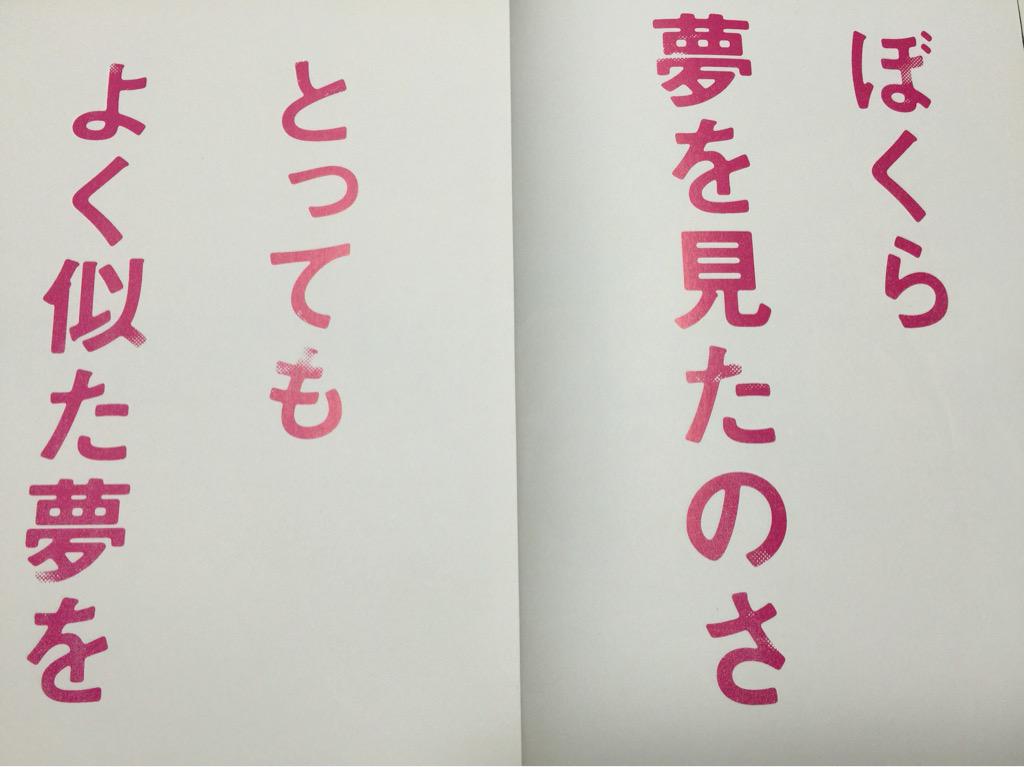 ぼくら
夢を見たのさ
とっても
よく似た夢を